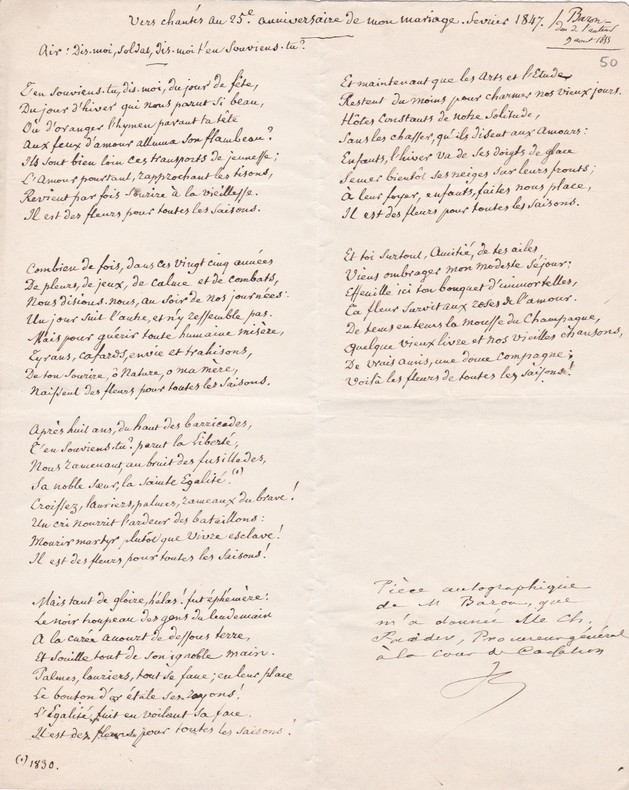 Vers chantés au 25e. anniversaire de mon mariage. fevrier 1847.
Baron
don de l'auteur
9 aout 1855
50
Air: Dis-moi, soldat, dis-moi t'en souviens-tu?
T'en souviens-tu, dis-moi, du jour de fête,
Du jour d'hiver qui nous parut si beau,
Où d'oranger l'hymen parant ta tête
Aux feux d'amour alluma son flambeau?
Ils sont bien loin ces transports de jeunesse;
L'Amour pourtant, rapprochant les tisons,
Revient par fois sourire à la vieillesse.
Il est des fleurs pour toutes les saisons.
Combien de fois, dans ces vingt cinq années
De pleurs, de jeux, de calme et de combats,
Nous disions-nous, au soir de nos journées:
Un jour suit l'autre, et n'y ressemble pas.
Mais pour guérir toute humaine misère,
Tyrans, cafards, envie et trahisons,
De ton sourire, ô Nature, o ma mère,
Naissent des fleurs pour toutes les saisons.
Après huit ans, du haut des barricades,
T'en souviens-tu? parut la Liberté,
Nous ramenant, au bruit des fusillades,
Sa noble sœur, la sainte Egalité.(*)
Croissez, lauriers, palmes, rameaux du brave!
Un cri nourrit l'ardeur des bataillons:
Mourir martyr plutôt que vivre esclave!
Il est des fleurs pour toutes les saisons!
Mais tant de gloire, hélas! fut éphémère:
Le noir troupeau des gens du lendemain
A la curée accourt de dessous terre,
Et souille tout de son ignoble main.
Palmes, lauriers, tout se fane; en leur place
Le bouton d'or étale ses rayons!
L'Egalité fuit en voilant sa face.
Il est des fleurs pour toutes les saisons!
(*) 1830.
Et maintenant que les Arts et l'Etude
Restent du moins pour charmer nos vieux jours.
Hôtes constants de notre solitude,
Sans les chasser, qu'ils disent aux Amours:
Enfants, l'hiver va de ses doigts de glace
Semer bientôt ses neiges sur leurs fronts;
À leur foyer, enfants, faites nous place,
Il est des fleurs pour toutes les saisons.
Et toi surtout, Amitié, de tes ailes
Viens ombrager mon modeste séjour:
Effeuille ici ton bouquet d'immortelles,
La fleur survit aux roses de l'amour.
De tems en tems la mousse du Champagne,
Quelque vieux livre et nos vieilles chansons,
De vrais amis, une douce compagne;
Voilà les fleurs de toutes les saisons!
Pièce autographique
de M Baron, que
m'a donnée Me Ch.
Procureur général
à la cour de Cassation